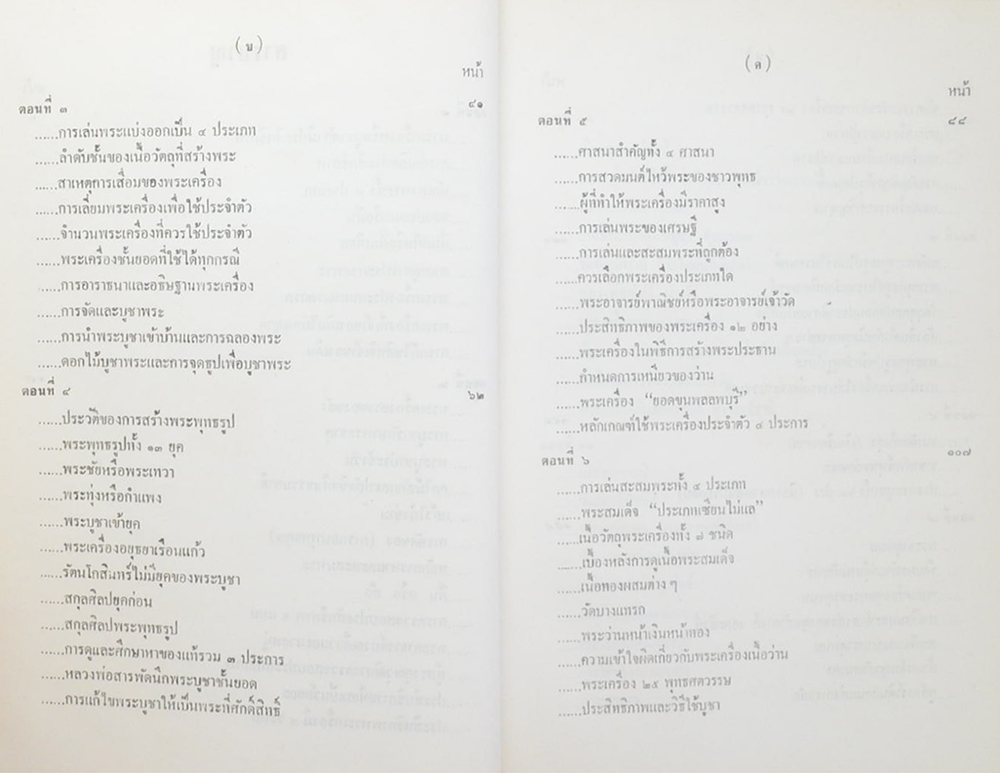 (ข)
หน้า
ตอนที่ ๓ ๔๑
......การเล่นพระแบ่งออกเป็น ๔ ประเภท
......ลำดับชั้นของเนื้อวัตถุที่สร้างพระ
......สาเหตุการเสื่อมของพระเครื่อง
......การเลี่ยมพระเครื่องเพื่อใช้ประจำตัว
......จำนวนพระเครื่องที่ควรใช้ประจำตัว
......พระเครื่องชั้นยอดที่ใช้ได้ทุกกรณี
......การอาราธนาและอธิษฐานพระเครื่อง
......การจัดและบูชาพระ
......การนำพระบูชาเข้าบ้านและการฉลองพระ
......ดอกไม้บูชาพระและการจุดธูปเพื่อบูชาพระ
ตอนที่ ๔ ๖๒
......ประวัติของการสร้างพระพุทธรูป
......พระพุทธรูปทั้ง ๑๓ ยุค
......พระชัยหรือพระเทวา
......พระทุ่งหรือกำแพง
......พระบูชาเข้ายุค
......พระเครื่องอยุธยาเรือนแก้ว
......รัตนโกสินทร์ไม่มียุคของพระบูชา
......สกุลศิลปยุคก่อน
......สกุลศิลปพระพุทธรูป
......การดูและศึกษาหาของแท้รวม ๓ ประการ
......หลวงพ่อสารพัดนึกพระบูชาชั้นยอด
......การแก้ไขพระบูชาให้เป็นพระที่ศักดิ์สิทธ์
(ค)
หน้า
ตอนที่ ๕ ๘๘
......ศาสนาสำคัญทั้ง ๔ ศาสนา
......การสวดมนต์ไหว้พระของชาวพุทธ
......ผู้ที่ทำให้พระเครื่องมีราคาสูง
......การเล่นพระของเศรษฐี
......การเล่นและสะสมพระที่ถูกต้อง
......ควรเลือกพระเครื่องประเภทใด
......พระอาจารย์พาณิชย์หรือพระอาจารย์เจ้าวัด
......ประสิทธิภาพของพระเครื่อง ๑๒ อย่าง
......พระเครื่องในพิธีการสร้างพระประธาน
......กำหนดการเหนียวของว่าน
......พระเครื่อง “ยอดขุนพลลพบุรี”
......หลักเกณฑ์ใช้พระเครื่องประจำตัว ๔ ประการ
ตอนที่ ๖ ๑๐๗
......การเล่นสะสมพระทั้ง ๔ ประเภท
......พระสมเด็จ “ประเภทเซียนไม่แล”
......เนื้อวัตถุพระเครื่องทั้ง ๗ ชนิด
......เบื้องหลังการดูเนื้อพระสมเด็จ
......เนื้อทองผสมต่าง ๆ
......วัดบางแทรก
......พระว่านหน้าเงินหน้าทอง
......ความเข้าใจผิดเกี่ยวกับพระเครื่องเนื้อว่าน
......พระเครื่อง ๒๕ พุทธศตวรรษ
......ประสิทธิภาพและวิธีใช้บูชา